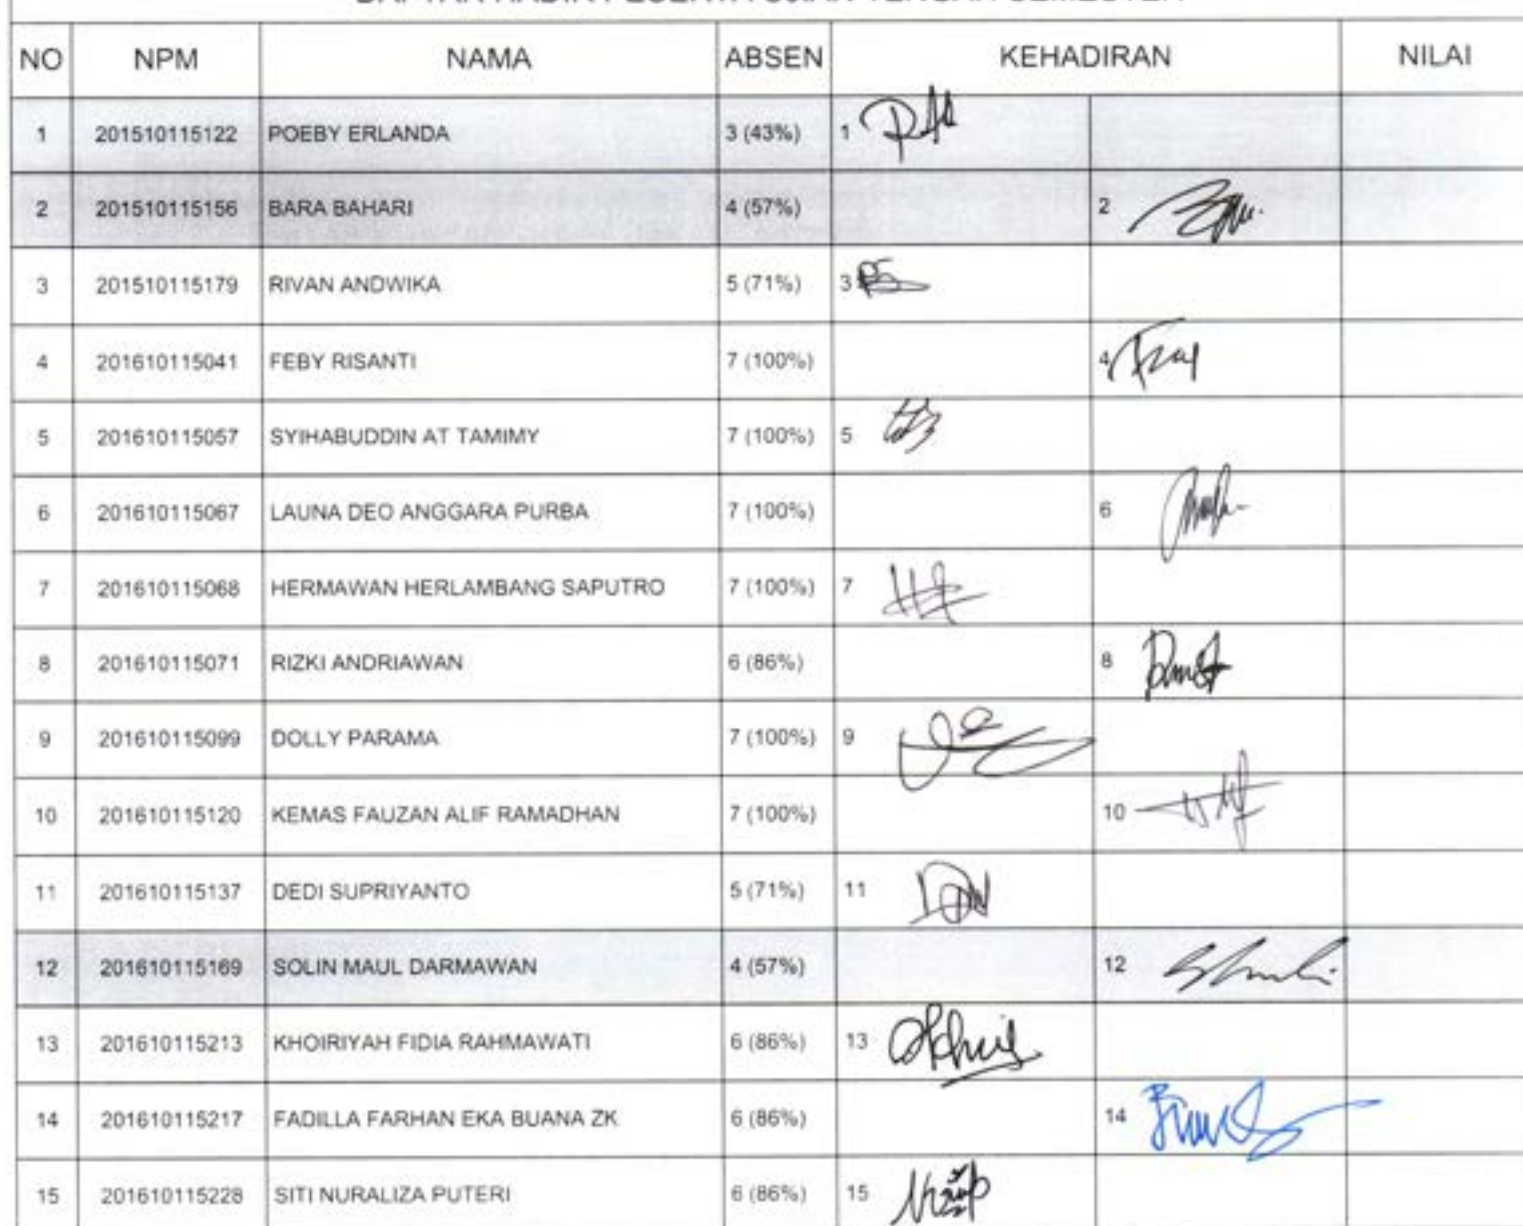 DAFTAR HADIR PESERTA UJIAN TENGAH SEMESTER
NO NPM NAMA ABSEN KEHADIRAN NILAI
1 201510115122 POEBY ERLANDA 3 (43%) 1
2 201510115156 BARA BAHARI 4 (57%) 2
3 201510115179 RIVAN ANDWIKA 5 (71%) 3
4 201610115041 FEBY RISANTI 7 (100%) 4
5 201610115057 SYIHABUDDIN AT TAMIMY 7 (100%) 5
6 201610115067 LAUNA DEO ANGGARA PURBA 7 (100%) 6
7 201610115068 HERMAWAN HERLAMBANG SAPUTRO 7 (100%) 7
8 201610115071 RIZKI ANDRIAWAN 6 (86%) 8
9 201610115099 DOLLY PARAMA 7 (100%) 9
10 201610115120 KEMAS FAUZAN ALIF RAMADHAN 7 (100%) 10
11 201610115137 DEDI SUPRIYANTO 5 (71%) 11
12 201610115169 SOLIN MAUL DARMAWAN 4 (57%) 12
13 201610115213 KHOIRIYAH FIDIA RAHMAWATI 6 (86%) 13
14 201610115217 FADILLA FARHAN EKA BUANA ZK 6 (86%) 14
15 201610115228 SITI NURALIZA PUTERI 6 (86%) 15